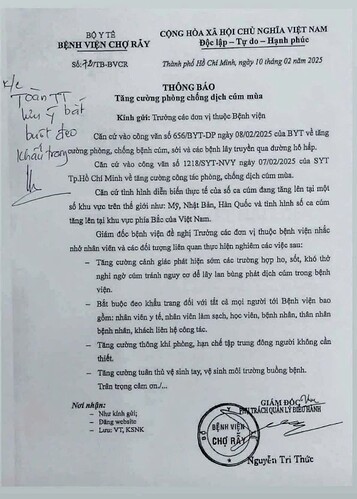 BỘ Y TẾ
BỆNH VIỆN CHỢ RẪY
CỘNG HÒA XÃ HỘI CHỦ NGHĨA VIỆT NAM
Độc lập – Tự do – Hạnh phúc
Số: /TB-BVCR
Thành phố Hồ Chí Minh, ngày 10 tháng 02 năm 2025
K/c
Toàn TT
lưu ý bắt
buộc đeo
khẩu trang
THÔNG BÁO
Tăng cường phòng chống dịch cúm mùa
Kính gửi: Trưởng các đơn vị thuộc Bệnh viện
Căn cứ vào công văn số 656/BYT-DP ngày 08/02/2025 của BYT về tăng
cường phòng, chống bệnh cúm, sởi và các bệnh lây truyền qua đường hô hấp.
Căn cứ vào công văn số 1218/SYT-NVY ngày 07/02/2025 của SYT
Tp.Hồ Chí Minh về tăng cường công tác phòng, chống dịch cúm mùa.
Căn cứ tình hình diễn biến thực tế của số ca cúm đang tăng lên tại một
số khu vực trên thế giới như: Mỹ, Nhật Bản, Hàn Quốc và tình hình số ca cúm
tăng lên tại khu vực phía Bắc của Việt Nam.
Giám đốc bệnh viện đề nghị Trưởng các đơn vị thuộc bệnh viện nhắc
nhở nhân viên và các đối tượng liên quan thực hiện nghiêm các việc sau:
– Tăng cường cảnh giác phát hiện sớm các trường hợp ho, sốt, khó thở
nghi ngờ cúm tránh nguy cơ để lây lan bùng phát dịch cúm trong bệnh
viện.
– Bắt buộc đeo khẩu trang đối với tất cả mọi người tới Bệnh viện bao
gồm: nhân viên y tế, nhân viên làm sạch, học viên, bệnh nhân, thân nhân
bệnh nhân, khách liên hệ công tác.
– Tăng cường thông khí phòng, hạn chế tập trung đông người không cần
thiết.
– Tăng cường tuân thủ vệ sinh tay, vệ sinh môi trường buồng bệnh.
Trân trọng cám ơn./...
Nơi nhận:
– Như kính gửi;
– Đăng website
– Lưu: VT, KSNK
GIÁM ĐỐC
PHỤ TRÁCH QUẢN LÝ ĐIỀU HÀNH
BỆNH VIỆN
CHỢ RẪY
Nguyễn Tri Thức